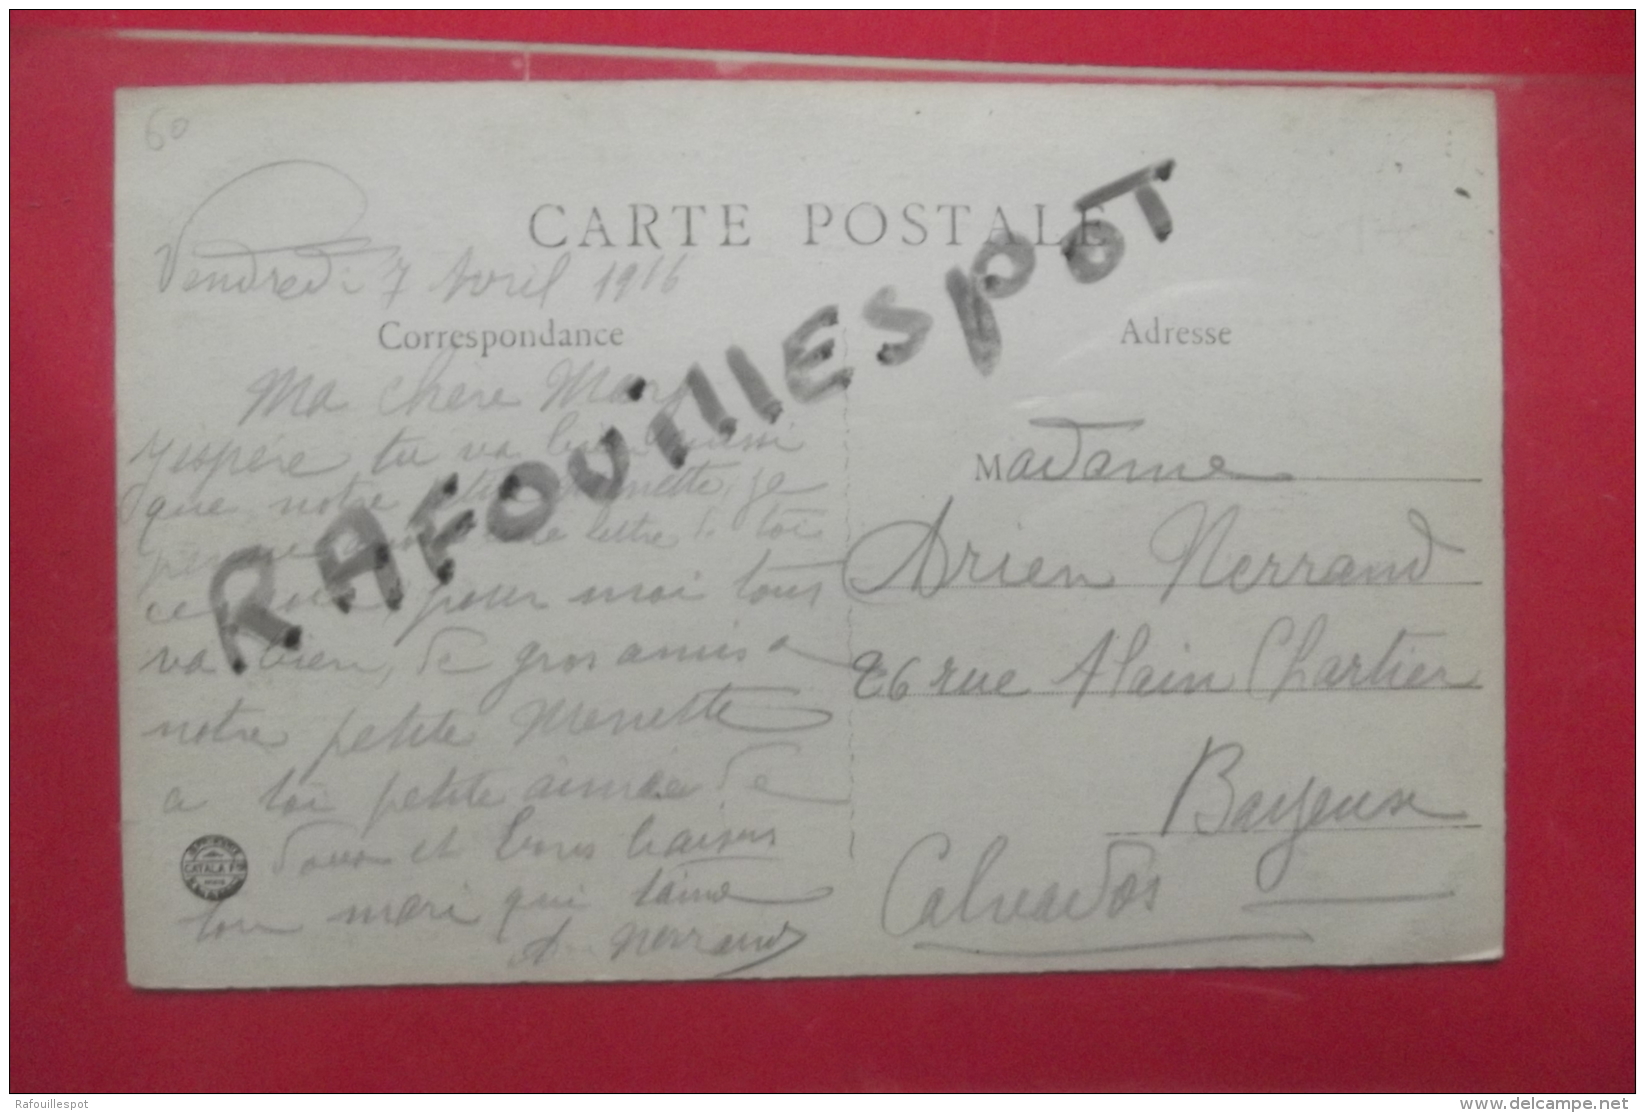 60
CARTE POSTALE
Vendredi 7 Avril 1916
Correspondance
Adresse
RAFOUILLESPOT
Ma chère
J'espère tu va
que notre je
lettre de toi
pour moi tous
va bien, de gros amis a
notre petite Menette
a toi petite aimée de
doux et bons baisers
ton mari qui t'aime
A. Nerrand
Madame
Adrien Nerrand
26 rue Alain Chartier
Bayeux
Calvados
CATALA
Rafouillespot
www.delcampe.net